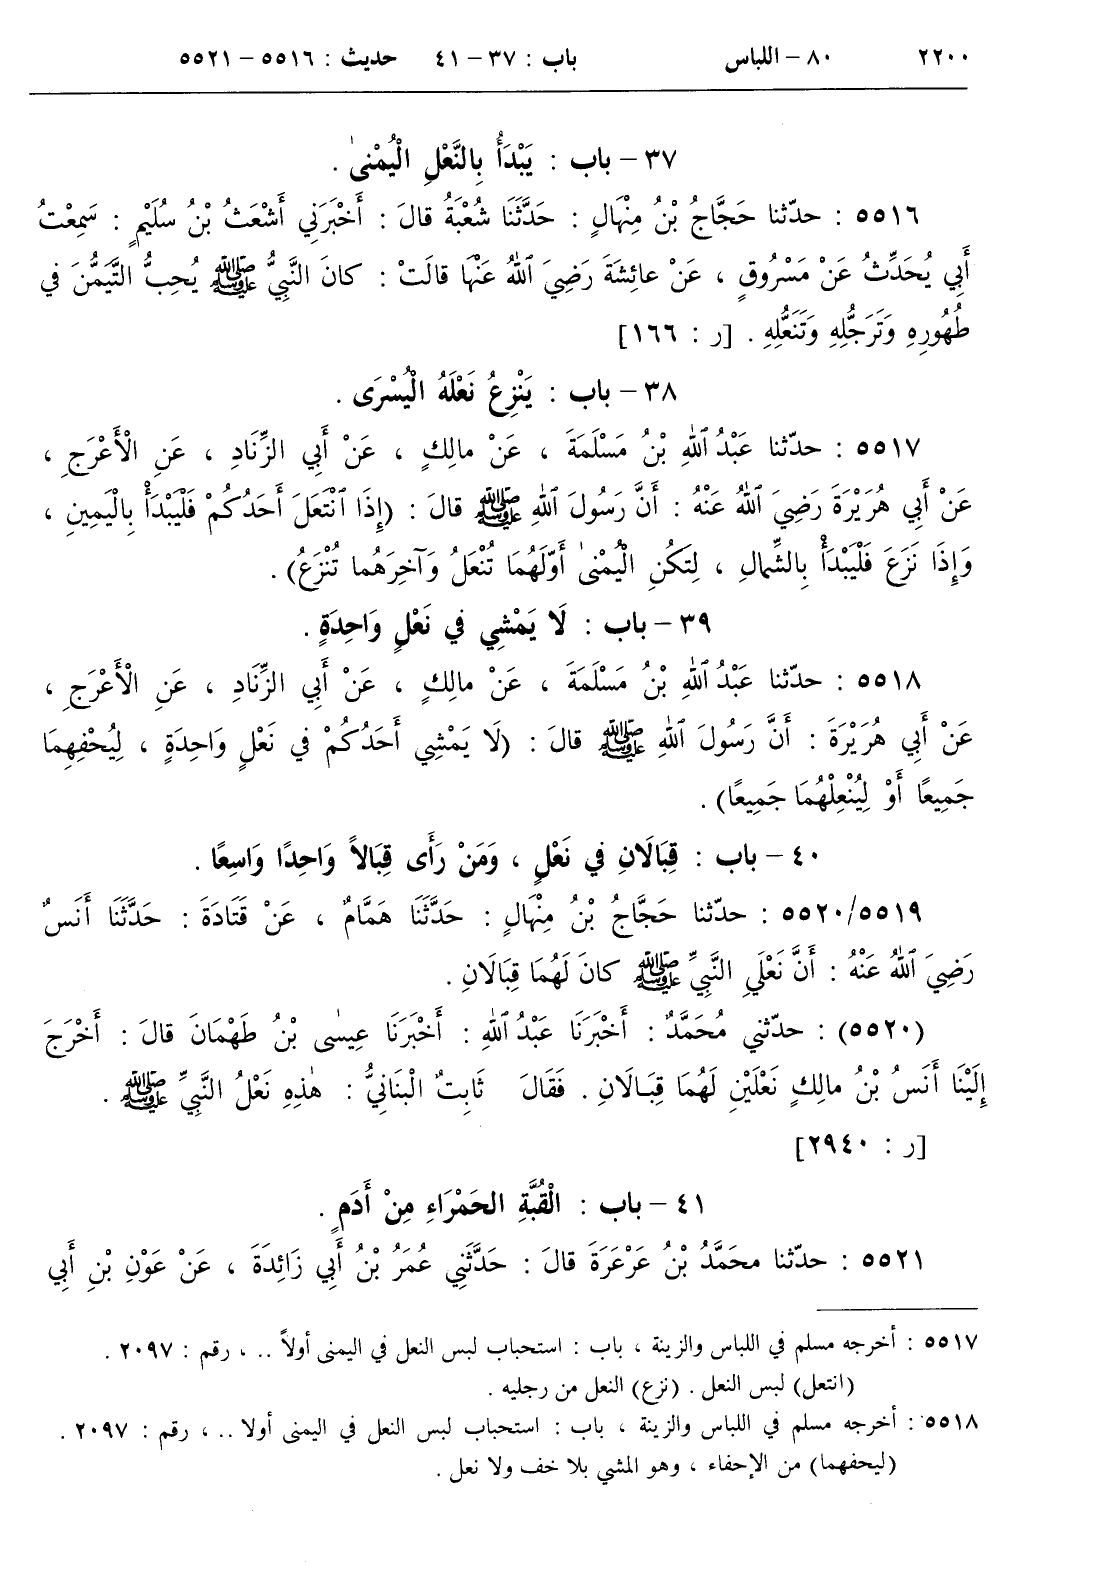 ٢٢٠٠ ٨٠ – اللباس باب : ٣٧ – ٤١ حديث : ٥٥١٦ – ٥٥٢١
٣٧ – باب : يَبْدَأُ بِالنَّعْلِ الْيُمْنىٰ .
٥٥١٦ : حدّثنا حَجَّاجُ بْنُ مِنْهَالٍ : حَدَّثَنَا شُعْبَةُ قالَ : أَخْبَرَنِي أَشْعَثُ بْنُ سُلَيْمٍ : سَمِعْتُ
أَبِي يُحَدِّثُ عَنْ مَسْرُوقٍ ، عَنْ عائِشَةَ رَضِيَ ٱللهُ عَنْهَا قالَتْ : كانَ النَّبِيُّ ﷺ يُحِبُّ التَّيَمُّنَ في
طُهُورِهِ وَتَرَجُّلِهِ وَتَنَعُّلِهِ . [ر : ١٦٦]
٣٨ – باب : يَنْزِعُ نَعْلَهُ الْيُسْرَى .
٥٥١٧ : حدّثنا عَبْدُ ٱللهِ بْنُ مَسْلَمَةَ ، عَنْ مالِكٍ ، عَنْ أَبِي الزِّنَادِ ، عَنِ الْأَعْرَجِ ،
عَنْ أَبِي هُرَيْرَةَ رَضِيَ ٱللهُ عَنْهُ : أَنَّ رَسُولَ ٱللهِ ﷺ قالَ : (إِذَا ٱنْتَعَلَ أَحَدُكُمْ فَلْيَبْدَأْ بِالْيَمِينِ ،
وَإِذَا نَزَعَ فَلْيَبْدَأْ بِالشِّمالِ ، لِتَكُنِ الْيُمْنىٰ أَوَّلَهُمَا تُنْعَلُ وَآخِرَهُما تُنْزَعُ) .
٣٩ – باب : لَا يَمْشِي في نَعْلٍ وَاحِدَةٍ .
٥٥١٨ : حدّثنا عَبْدُ ٱللهِ بْنُ مَسْلَمَةَ ، عَنْ مالِكٍ ، عَنْ أَبِي الزِّنَادِ ، عَنِ الْأَعْرَجِ ،
عَنْ أَبِي هُرَيْرَةَ : أَنَّ رَسُولَ ٱللهِ ﷺ قالَ : (لَا يَمْشِي أَحَدُكُمْ في نَعْلٍ وَاحِدَةٍ ، لِيُحْفِهِمَا
جَمِيعًا أَوْ لِيُنْعِلْهُمَا جَمِيعًا) .
٤٠ – باب : قِبَالَانِ في نَعْلٍ ، وَمَنْ رَأَى قِبَالاً وَاحِدًا وَاسِعًا .
٥٥٢٠/٥٥١٩ : حدّثنا حَجَّاجُ بْنُ مِنْهَالٍ : حَدَّثَنَا هَمَّامٌ ، عَنْ قَتَادَةَ : حَدَّثَنَا أَنَسٌ
رَضِيَ ٱللهُ عَنْهُ : أَنَّ نَعْلَيِ النَّبِيِّ ﷺ كانَ لَهُمَا قِبَالَانِ .
(٥٥٢٠) : حدّثني مُحَمَّدٌ : أَخْبَرَنَا عَبْدُ ٱللهِ : أَخْبَرَنَا عِيسٰى بْنُ طَهْمَانَ قالَ : أَخْرَجَ
إِلَيْنَا أَنَسُ بْنُ مالِكٍ نَعْلَيْنِ لَهُمَا قِبَالَانِ . فَقَالَ ثَابِتٌ الْبُنَانِيُّ : هٰذِهِ نَعْلُ النَّبِيِّ ﷺ .
[ر : ٢٩٤٠]
٤١ – باب : الْقُبَّةِ الحَمْرَاءِ مِنْ أَدَمٍ .
٥٥٢١ : حدّثنا محَمَّدُ بْنُ عَرْعَرَةَ قالَ : حَدَّثَنِي عُمَرُ بْنُ أَبِي زَائِدَةَ ، عَنْ عَوْنِ بْنِ أَبِي
٥٥١٧ : أخرجه مسلم في اللباس والزينة ، باب : استحباب لبس النعل في اليمنى أولاً .. ، رقم : ٢٠٩٧ .
(انتعل) لبس النعل . (نزع) النعل من رجليه .
٥٥١٨ : أخرجه مسلم في اللباس والزينة ، باب : استحباب لبس النعل في اليمنى أولا .. ، رقم : ٢٠٩٧ .
(ليحفهما) من الإحفاء ، وهو المشي بلا خف ولا نعل .